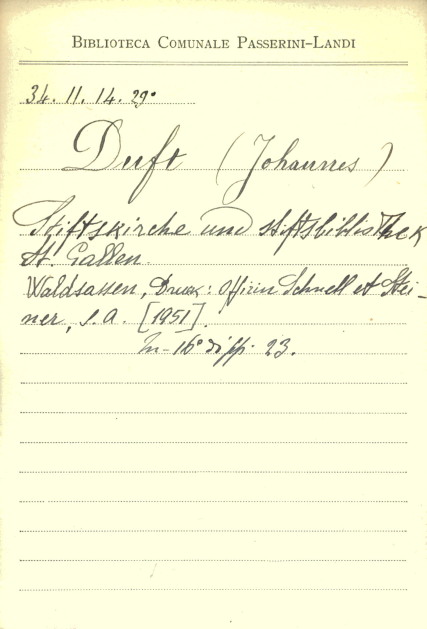 BIBLIOTECA COMUNALE PASSERINI-LANDI
34. 11. 14. 29°
Duft (Johannes)
Stiftskirche und stiftsbibliothek
St. Gallen.
Waldsassen, Druck: Offizin Schnell et Stei-
ner, s.a. [1951].
In-16° di pp. 23.